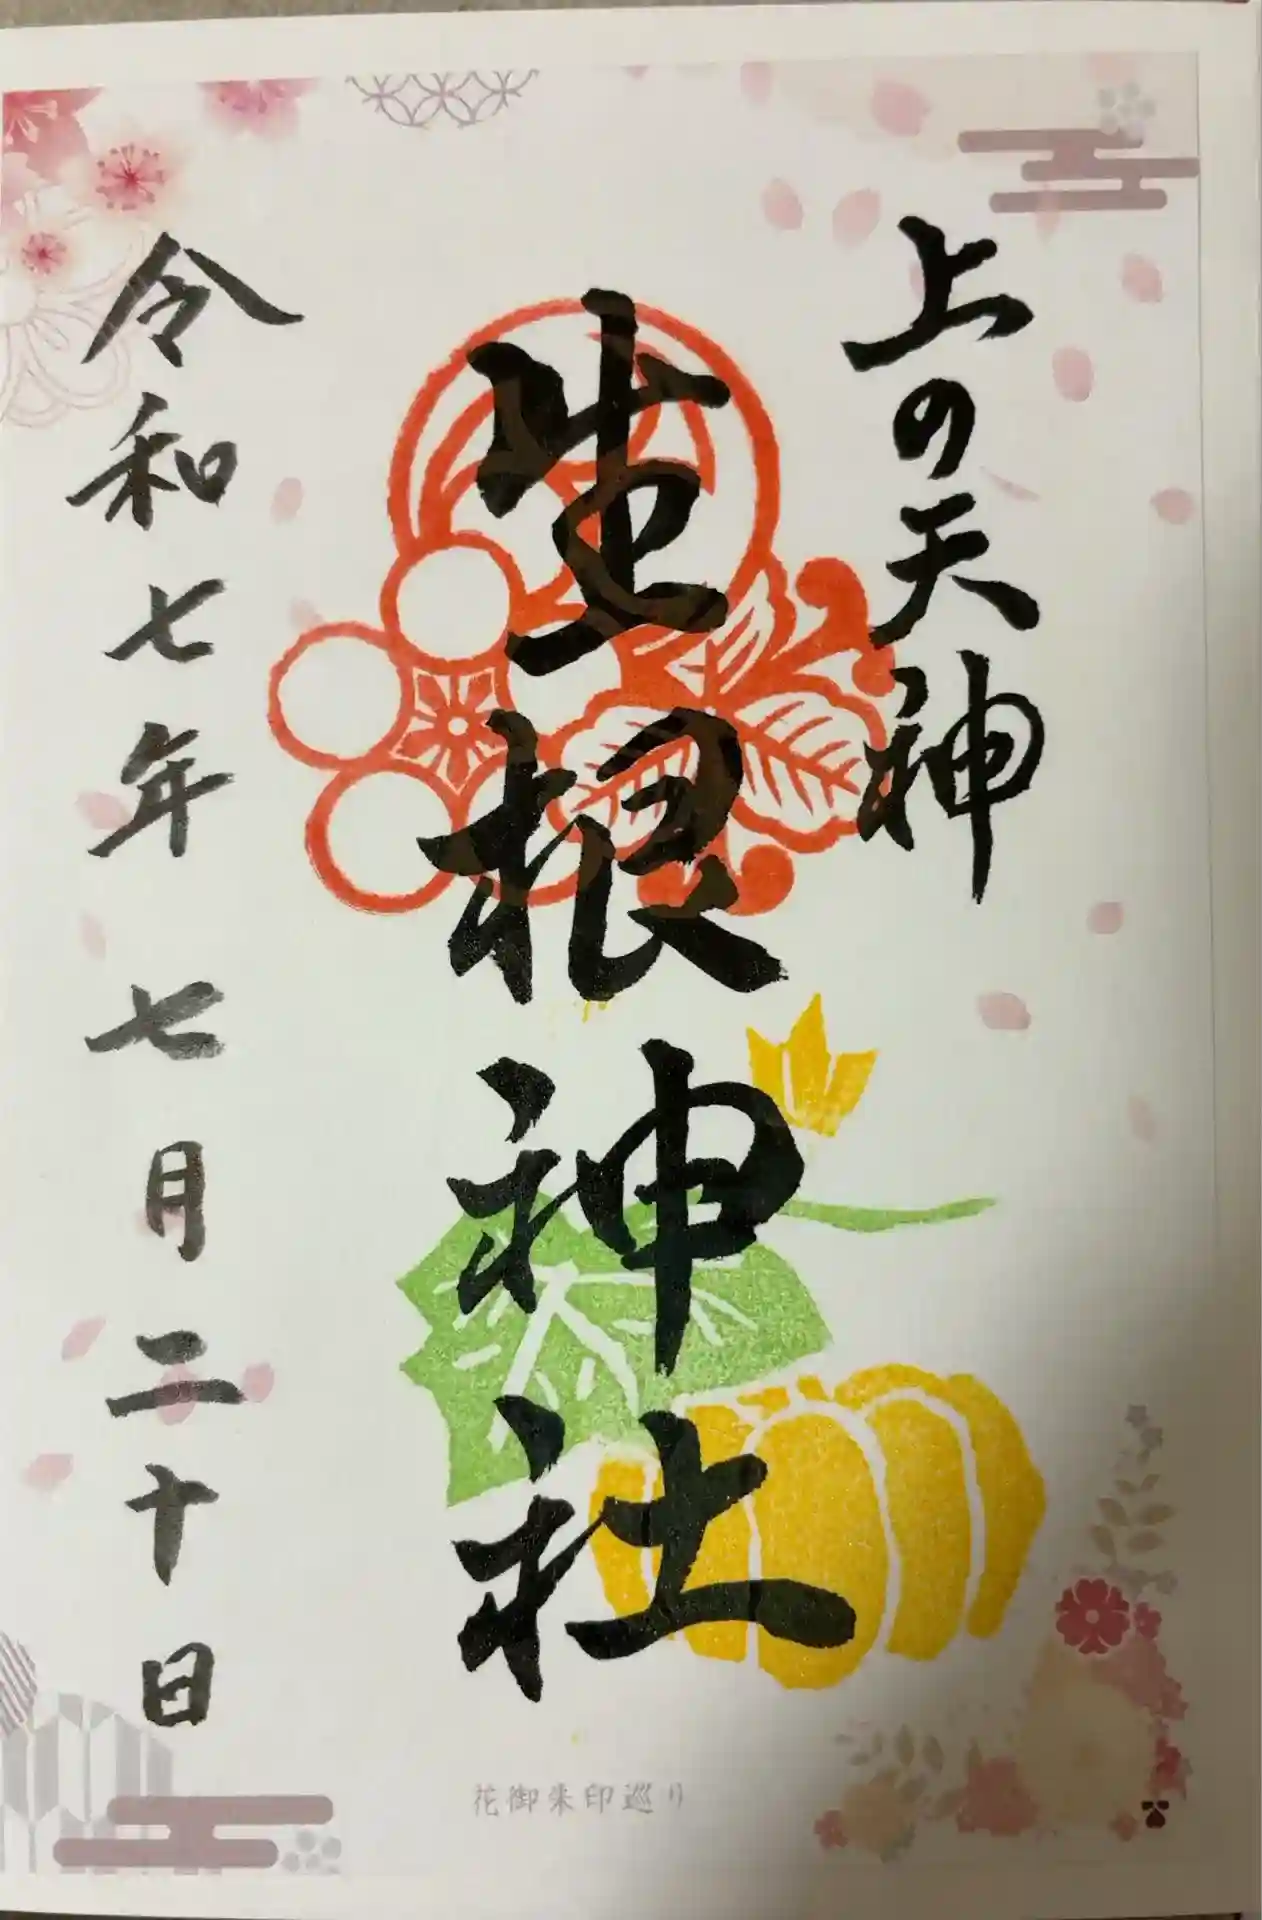 上の天神
生根神社
令和七年七月二十日
花御朱印巡り